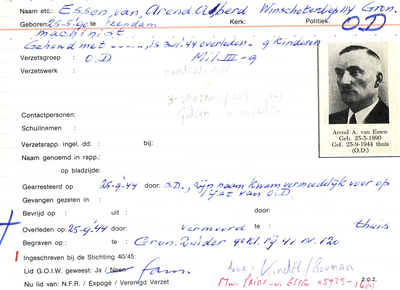 Naam etc.: Essen, van Arend Alberd Winschoterdiep 114 Gron.
Geboren: 25-5-90 te Veendam Kerk: Politiek: O.D
machinist
Gehuwd met 3 kinderen
Verzetsgroep : O.D Mil. III-9
Verzetswerk :
Contactpersonen:
Schuilnamen :
Verzetsrapp. ingel. dd. : bij:
Naam genoemd in rapp.:
op bladzijde:
Arend A. van Essen
Geb. 25-5-1890
Gef. 25-9-1944 thuis
(O.D.)
Gearresteerd op 25-9-'44 door: S.D., zijn naam kwam vermoedelijk voor op
lijst van O.D.
Gevangen gezeten in :
Bevrijd op : uit : door :
Overleden op : 25-9-'44 door: vermoord te : thuis
Begraven op : te : Gron. Zuider 4e kl. rij 41 nr. 120
Ingeschreven bij de Stichting 40/45:
Lid G.O.I.W. geweest: Ja / Neen fam.
Nu lid van: N.F.R. / Expogé / Verenigd Verzet